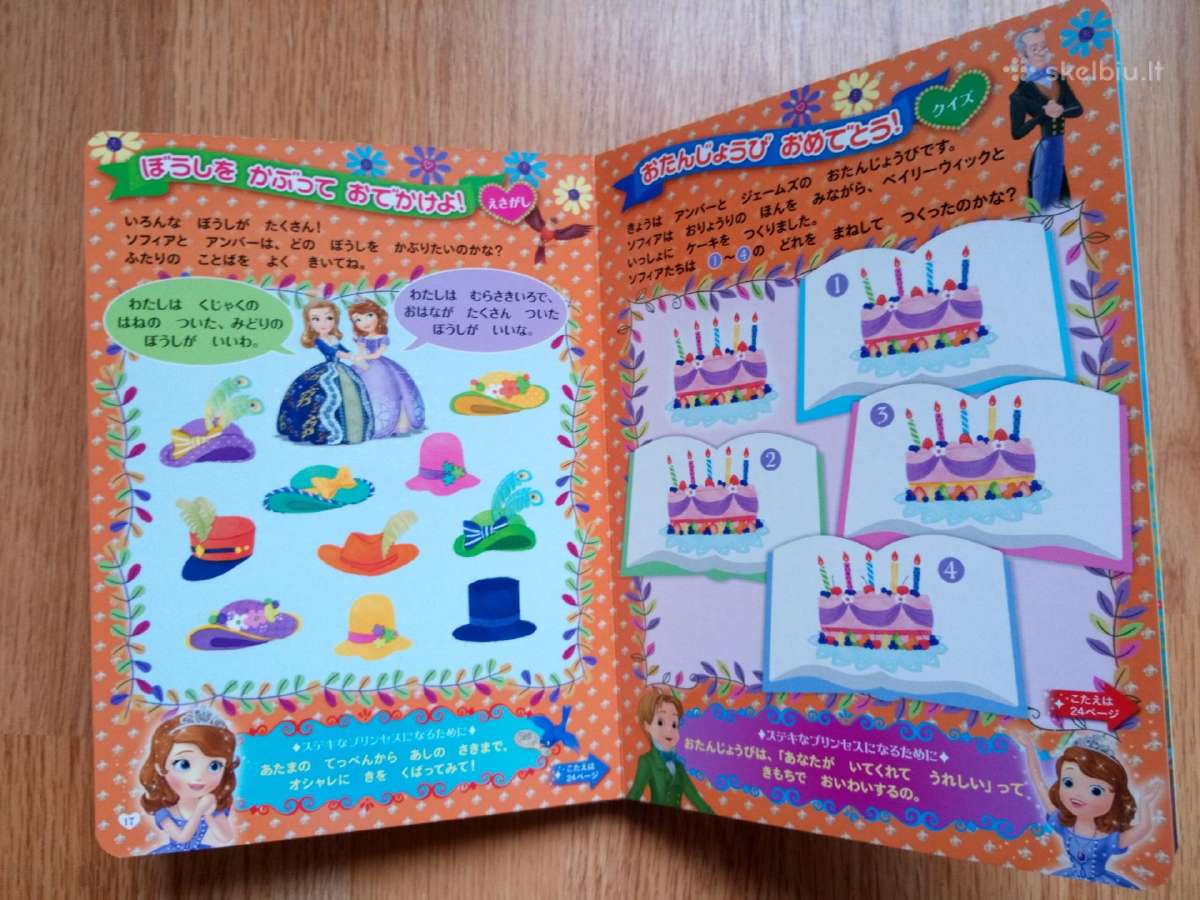 ぼうしを かぶって おでかけよ!
えさがし
いろんな ぼうしが たくさん!
ソフィアと アンバーは、どの ぼうしを かぶりたいのかな?
ふたりの ことばを よく きいてね。
わたしは くじゃくの
はねの ついた、みどりの
ぼうしが いいわ。
わたしは むらさきいろで、
おはなが たくさん ついた
ぼうしが いいな。
✦ステキなプリンセスになるために✦
あたまの てっぺんから あしの さきまで、
オシャレに きを くばってみて!
こたえは
24ページ
17
おたんじょうび おめでとう!
クイズ
きょうは アンバーと ジェームズの おたんじょうびです。
ソフィアは おりょうりの ほんを みながら、ベイリーウィックと
いっしょに ケーキを つくりました。
ソフィアたちは 1〜4の どれを まねして つくったのかな?
1
2
3
4
こたえは
24ページ
✦ステキなプリンセスになるために✦
おたんじょうびは、「あなたが いてくれて うれしい」って
きもちで おいわいするの。
skelbiu.lt